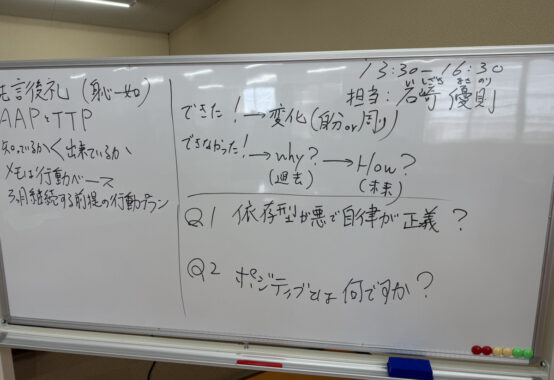 先言後礼（身心一如）
AAPとTTP
知っているか＜出来ているか
メモは行動ベース
3ヶ月継続する前提の行動プラン
13:30－16:30
いしざき まさのり
担当：岩﨑 優則
できた！→変化（自分or周り）
できなかった！→why？→How？
（過去）（未来）
Q1 依存型が悪で自律が正義？
Q2 ポジティブとは何ですか？